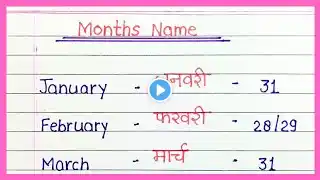 Months Name
January - जनवरी - 31
February - फरवरी - 28/29
March - मार्च - 31